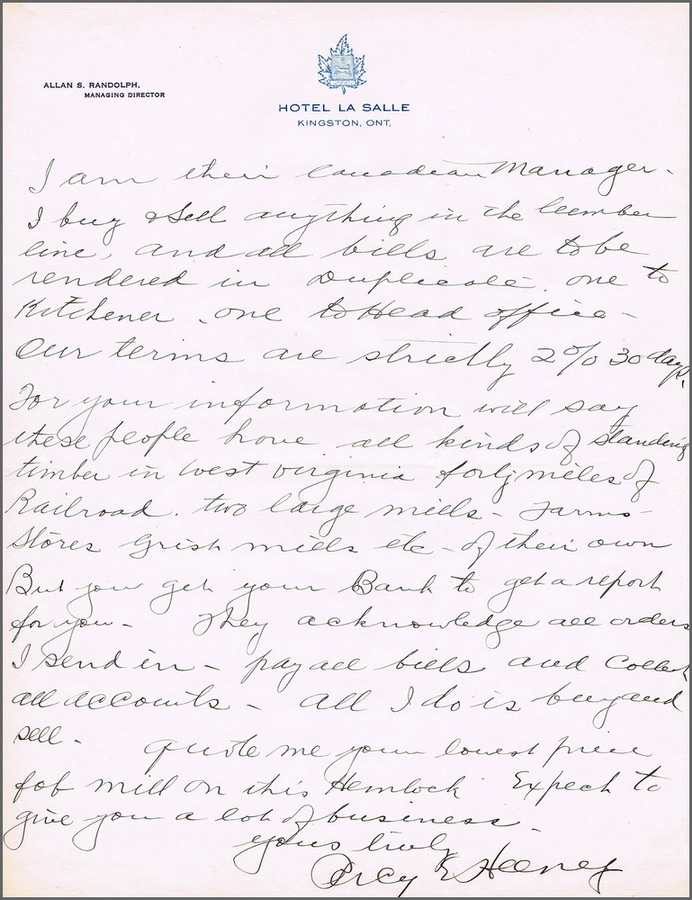 ALLAN S. RANDOLPH,
MANAGING DIRECTOR
HOTEL LA SALLE
KINGSTON, ONT.
I am their Canadian Manager -
I buy & sell anything in the lumber
line, and all bills are to be
rendered in Duplicate, one to
Kitchener, one to Head office -
Our terms are strictly 2% 30 days.
For your information will say
these people have all kinds of standing
timber in West Virginia forty miles of
Railroad. two large mills - Farms -
Stores Grist mills etc - of their own
But you get your Bank to get a report
for you - They acknowledge all orders
I send in - pay all bills and Collect
all accounts - All I do is buy and
sell - Quote me your lowest price
fob mill on this Hemlock Expect to
give you a lot of business.
yours truly
Percy E Heeney